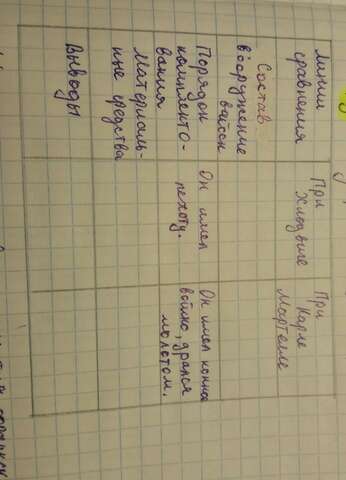 Линии
сравнения
При
Хлодвиге
При
Карле
Мартелле
Состав
вооружение
войск
Порядок
комплекто-
вания
Он имел
пехоту.
Он имел конное
войко, дрался
молотом.
Материаль-
ные средства
Выводы